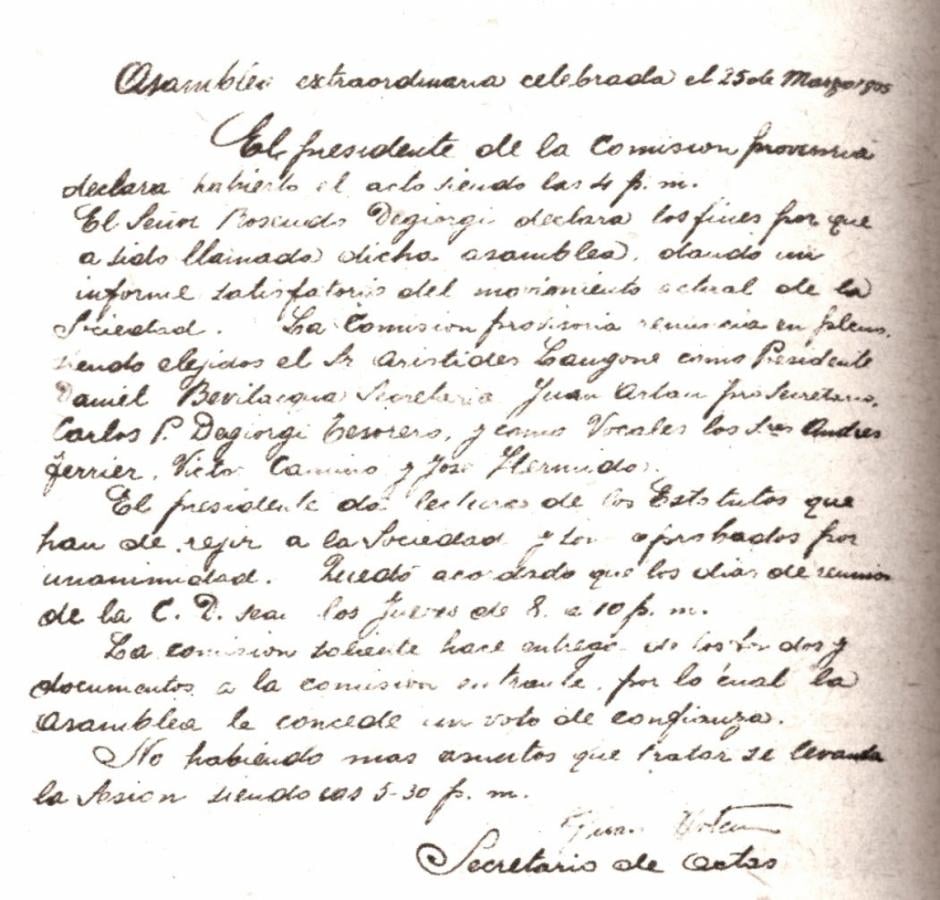 Asamblea extraordinaria celebrada el 25 de Marzo 1905
El presidente de la Comision provisoria
declara habierto el acto siendo las 4 p. m.
El Señor Rosendo Degiorgi declara los fines por que
a sido llamada dicha asamblea, dando un
informe satisfatorio del movimiento actual de la
Sociedad. La Comision provisoria renuncia en pleno,
siendo elejidos el Sr Aristides Langone como Presidente
Daniel Bevilacqua Secretario Juan pro Secretario,
Carlos P. Degiorgi Tesorero, y como Vocales los Sres Andres
Ferrier, Victor Camino y José Hermida.
El presidente da lectura de los Estatutos que
han de rejir a la Sociedad y son aprobados por
unanimidad. Quedó acordado que los dias de reunion
de la C. D. sean los Jueves de 8 a 10 p. m.
La comision saliente hace entrega de los fondos y
documentos a la comision entrante, por lo cual la
Asamblea le concede un voto de confianza.
No habiendo mas asuntos que tratar se levanta
la Sesion siendo las 5-30 p. m.
Juan
Secretario de actas